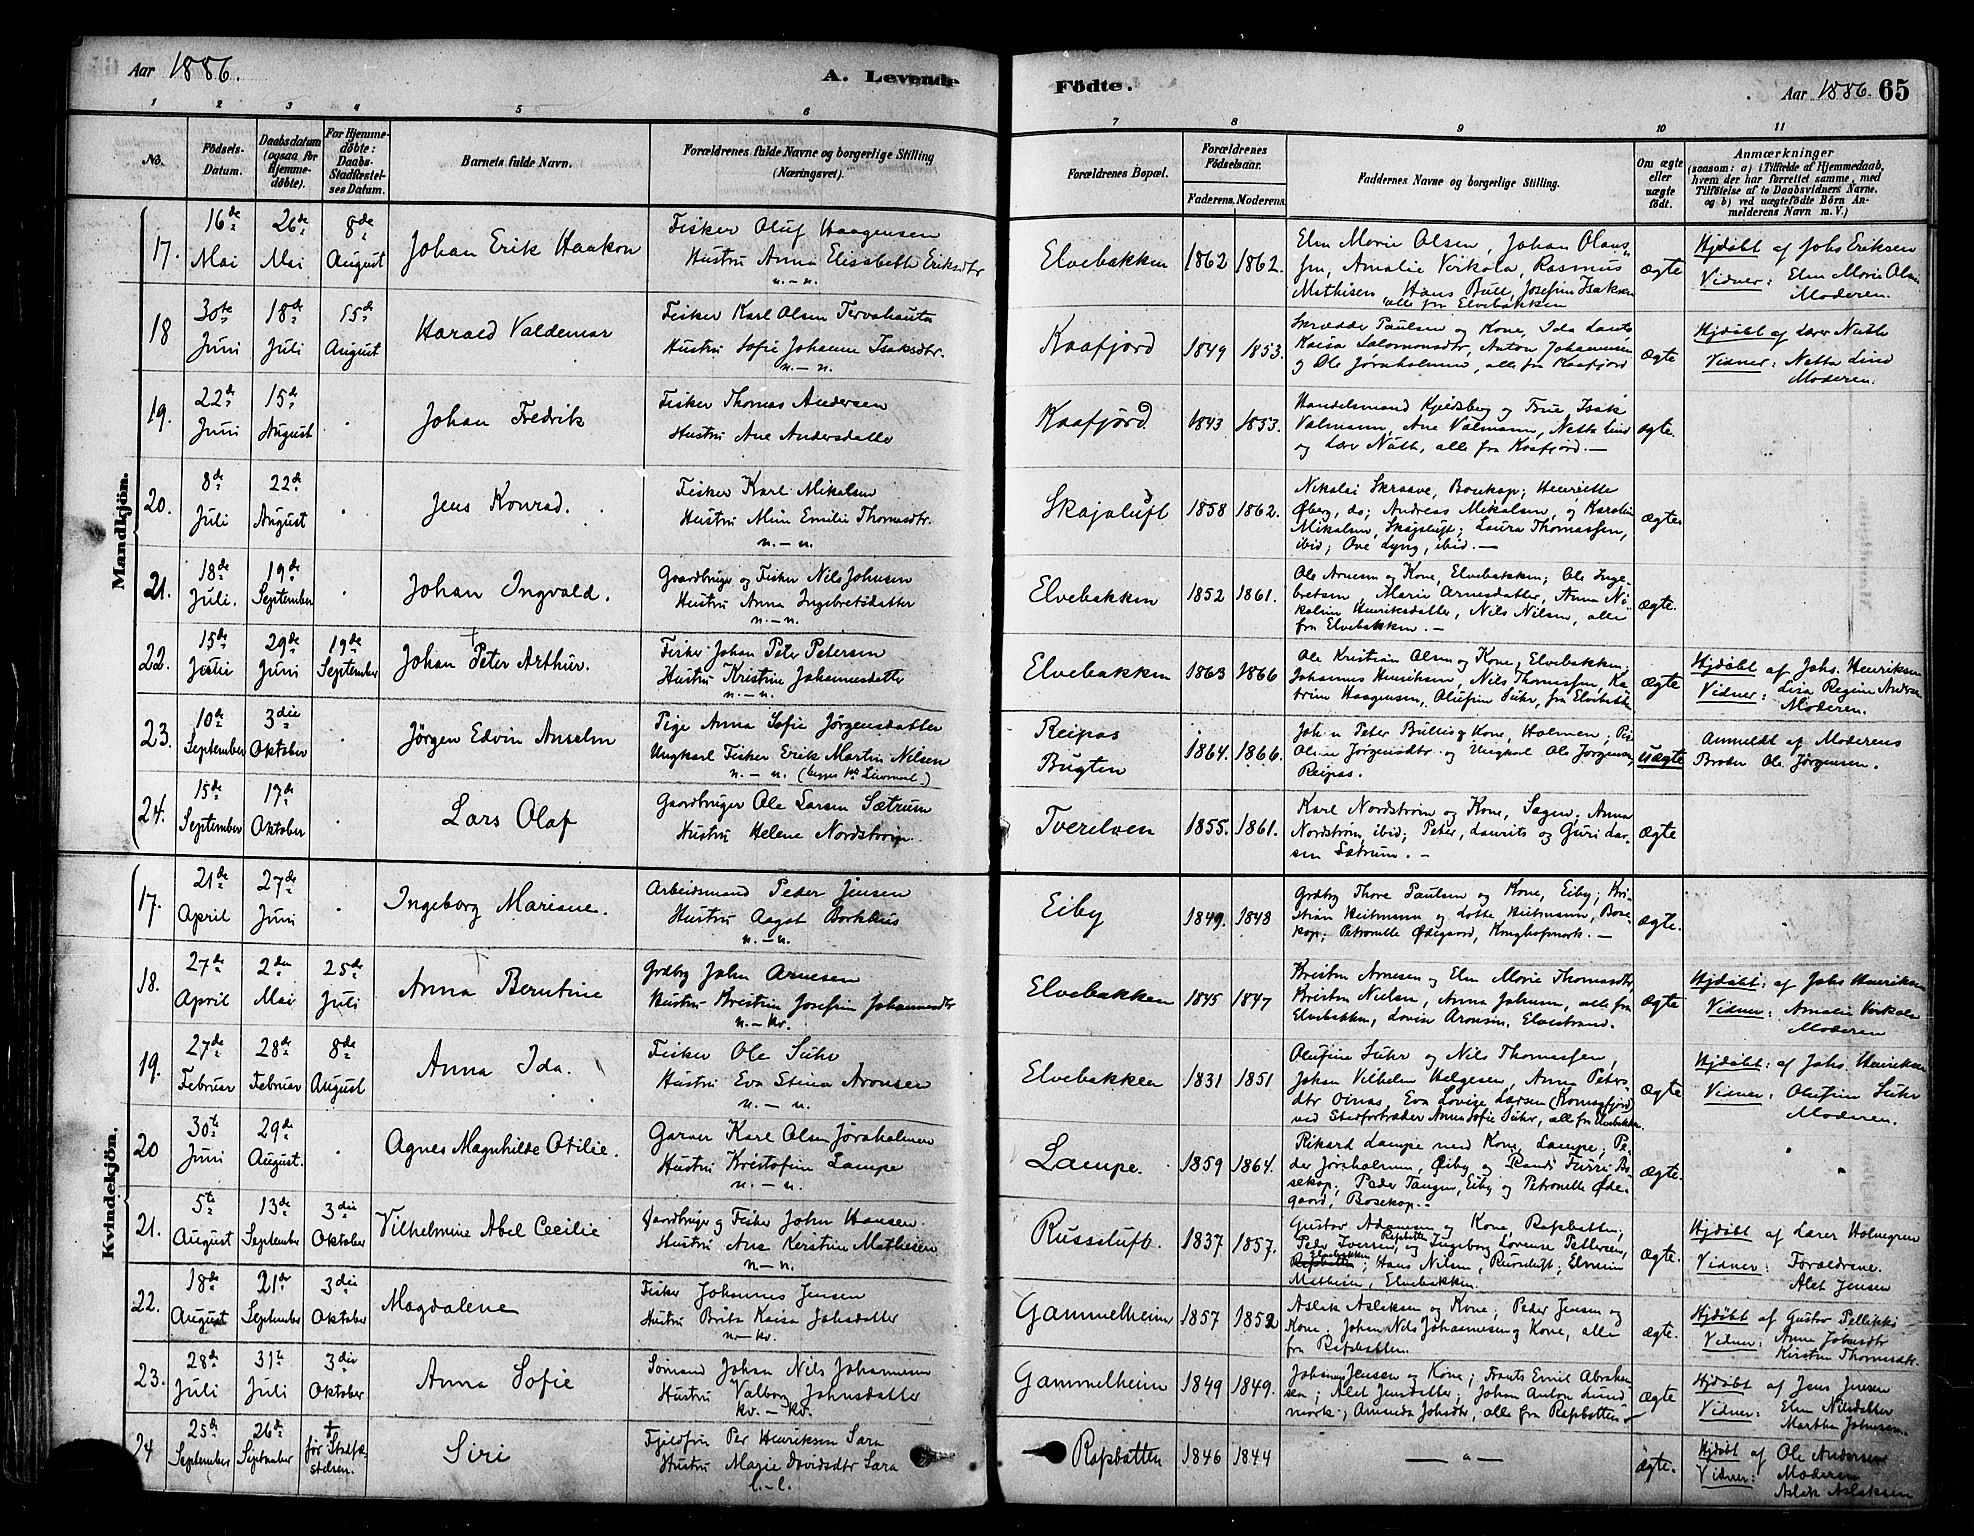 Aar 1886.
A. Levende
Födte.
Aar 1886. 65
1 2 3 4 5 6 7 8 9 10 11
No.
Födsels-Datum.
Daabsdatum (ogsaa for Hjemme-döbte).
For Hjemme-döbte: Daabs-Stadfæstel-ses Datum.
Barnets fulde Navn.
Forældrenes fulde Navne og borgerlige Stilling (Næringsvei).
Forældrenes Bopæl.
Forældrenes Födselsaar.
Faderens. Moderens.
Faddernes Navne og borgerlige Stilling.
Om ægte eller uægte födt.
Anmærkninger
(saasom: a) i Tilfælde af Hjemmedaab, hvem der har forrettet samme, med Tilföielse af to Daabsvidners Navne. og b) ved uægtefödte Börn An-melderens Navn m. V.)
Mandkjön.
17. 16de Mai 26de Mai 8de August Johan Erik Haakon
Fisker Oluf Haagensen
Hustru Anna Elisabeth Eriksdtr
n. – n.
Elvebakken 1862 1862.
Elen Marie Olsen, Johan Olaus
sen, Amalie Virkola, Rasmus
Mathisen, Hans Bull, Josefine Isaksen
alle fra Elvebakken
ægte
Hjdöbt af Johs Eriksen
Vidner: Elen Marie Olsen
Moderen.
18 30te Juni 18de Juli 15de August Harald Valdemar
Fisker Karl Olsen Tervahauta
Hustru Sofie Johanne Isaksdtr.
n. – n.
Kaafjord 1849 1853.
Skrædder Paulsen og Kone, Ida
Kaisa Salomonsdtr, Anton Johannesen
og Ole Jöraholmen, alle fra Kaafjord
ægte
Hjdöbt af Lærer
Vidner: Netta Lind
Moderen.
19. 22de Juni 15de August . Johan Fredrik
Fisker Thomas Andersen
Hustru Ane Andersdatter
Kaafjord 1843 1853.
Handelsmand Kjeldsberg og Frue, Isak
Valmann, Ane Valmann, Netta Lind
og Lærer, alle fra Kaafjord. –
ægte.
20. 8de Juli 22de August . Jens Konrad.
Fisker Karl Mikalsen
Hustru Emilie Thomasdtr.
n. – n.
Skajaluft 1858 1862.
Nikolai Skraave, Bosekop; Henriette
Öberg, do; Andreas Mikalsen, og Karoline
Mikalsen, Skajaluft; Laura Thomassen,
ibid; Ove Lyng, ibid. –
ægte
21. 18de Juli. 19de September . Johan Ingvald.
Gaardbruger og Fisker Nils Johnsen
Hustru Anna Ingebretsdatter
n. – n.
Elvebakken 1852 1861.
Ole Arnesen og Kone, Elvebakken; Ole Inge-
bretsen, Marie Arnesdatter, Anna Ni-
koline Henriksdatter, Nils Nilsen, alle
fra Elvebakken. –
ægte.
22. 15de 29de Juni 19de September Johan Peter Arthur.
Fisker Johan Peter Petersen
Hustru Kristine Johannesdatter
n. – n.
Elvebakken 1863 1866
Ole Kristian Olsen og Kone, Elvebakken;
Johannes Henriksen, Nils Thomassen, Ka-
trine Haagensen, Olufine Suhr, fra Elvebakken
ægte
Hjdöbt af Johs. Henriksen
Vidner: Lisa Regine Andersen
Moderen.
23. 10de September 3die Oktober . Jörgen Edvin Anselm
Pige Anna Sofie Jörgensdatter
Ungkarl Fisker Erik Martin Nilsen
n. – n. (begges 1ste Leiermaal)
Reipas Bugten 1864. 1866.
Johan Peter Bullis og Kone, Holmen; Pige
Oline Jörgensdtr og Ungkarl Ole Jörgensen,
Reipas.
uægte
Anmeldt af Moderens
Broder Ole Jörgensen.
24. 15de September 17de Oktober . Lars Olaf
Gaardbruger Ole Larsen Sætrum
Hustru Helene Nordström
Tverelven 1855. 1861.
Karl Nordström og Kone, Sagen; Anna
Nordström ibid; Peter, Laurits og Guri Lar-
sen Sætrum. –
ægte
Kvindekjön.
17. 21de April 27de Juni . Ingeborg Mariane.
Arbeidsmand Peder Jensen
Hustru Aagot Borkhus
n. – n.
Eiby 1849. 1848
Grdbrg Thore Paulsen og Kone, Eiby; Kri-
stian Heitmann og Lotte Heitmann, Bose-
kop; Petronelle Ödegaard, Konghofmark. –
ægte.
18. 27de April 2den Mai 25de Juli Anna Berntine
Grdbrg John Arnesen
Hustru Kristine Josefine Johannesdtr
n. – kv.
Elvebakken 1845 1847
Kristen Arnesen og Elen Marie Thomasdtr,
Kristen Nielsen, Anna Johnsen, alle fra
Elvebakken, Lovise Aronsen, Elvestrand.
ægte
Hjdöbt: af Johs Henriksen
Vidner: Amalie Virkola
Moderen
19. 27de Februar 28de Februar 8de August Anna Ida.
Fisker Ole Suhr
Hustru Eva Stina Aronsen
n. – n.
Elvebakken 1831 1851
Olufine Suhr og Nils Thomassen,
Johan Vilhelm Helgesen, Anna Peters
dtr Oinas, Eva Lovise Larsen (Komagfjord)
ved Stedfortræder Anna Sofie Suhr, alle fra Elvebakken
ægte
Hjdöbt: af Johs Henriksen
Vidner: Olufine Suhr
Moderen.
20 30te Juni 29de August. . Agnes Magnhilde Otilie.
Garver Karl Olsen Jöraholmen
Hustru Kristofine Lampe
n. – n.
Lampe. 1859 1864.
Rikard Lampe med Kone, Lampe, Pe-
der Jöraholmen, Eiby og Randi Furre Bo-
sekop; Peder Tangen, Eiby og Petronelle Öde-
gaard, Bosekop. –
ægte.
21. 5te August 13de September 3die Oktober Vilhelmine Abel Cecilie
Gaardbruger og Fisker John Hansen
Hustru Ane Kerstine Mathisen
n. – n.
Russeluft. 1837 1857.
Gustav Adamsen og Kone Rafsbotten;
Peder Iversen, Rafsbotten og Ingeborg Lorense Pettersen,
Elvebakken; Hans Nilsen, Russeluft; Elmine
Mathisen, Elvebakken.
ægte.
Hjdöbt af Lærer Holmgren
Vidner: Forældrene.
Alet Jensen
22. 18de August 21de September 3die Oktober Magdalene
Fisker Johannes Jensen
Hustru Brita Kaisa Johsdatter
n – kv.
Gammelheim 1857 1852
Aslak Aslaksen og Kone; Peder Jensen og
Kone. Johan Nils Johannesen og Kone, alle
fra Rafsbotten.
ægte.
Hjdöbt af Gustav Pellikki
Vidner: Anna Johnsdtr
Kirsten Thomasdtr.
23. 28de Juli 31te Juli 3die Oktober Anna Sofie
Sömand Johan Nils Johannesen
Hustru Valbor Johnsdatter
kv. – kv.
Gammelheim 1849 1849.
Johannes Jenssen og Kone; Frants Emil Abraham-
sen; Alet Jensdatter; Johan Anton Lund
mark; Amanda Johsdtr, alle fra Rafsbotten –
ægte
Hjdöbt af Jens Jensen
Vidner: Elen Nilsdatter
Marthe Johnsen.
24 25de September 26de September + för Stadfæ-stelsen. Siri
Fjeldfin Per Henriksen Sara
Hustru Marie Davidsdtr Sara
l. – l.
Rafsbotten 1846 1844
— " —
ægte.
Hjdöbt af Ole Andersen
Vidner: Moderen
Aslak Aslaksen